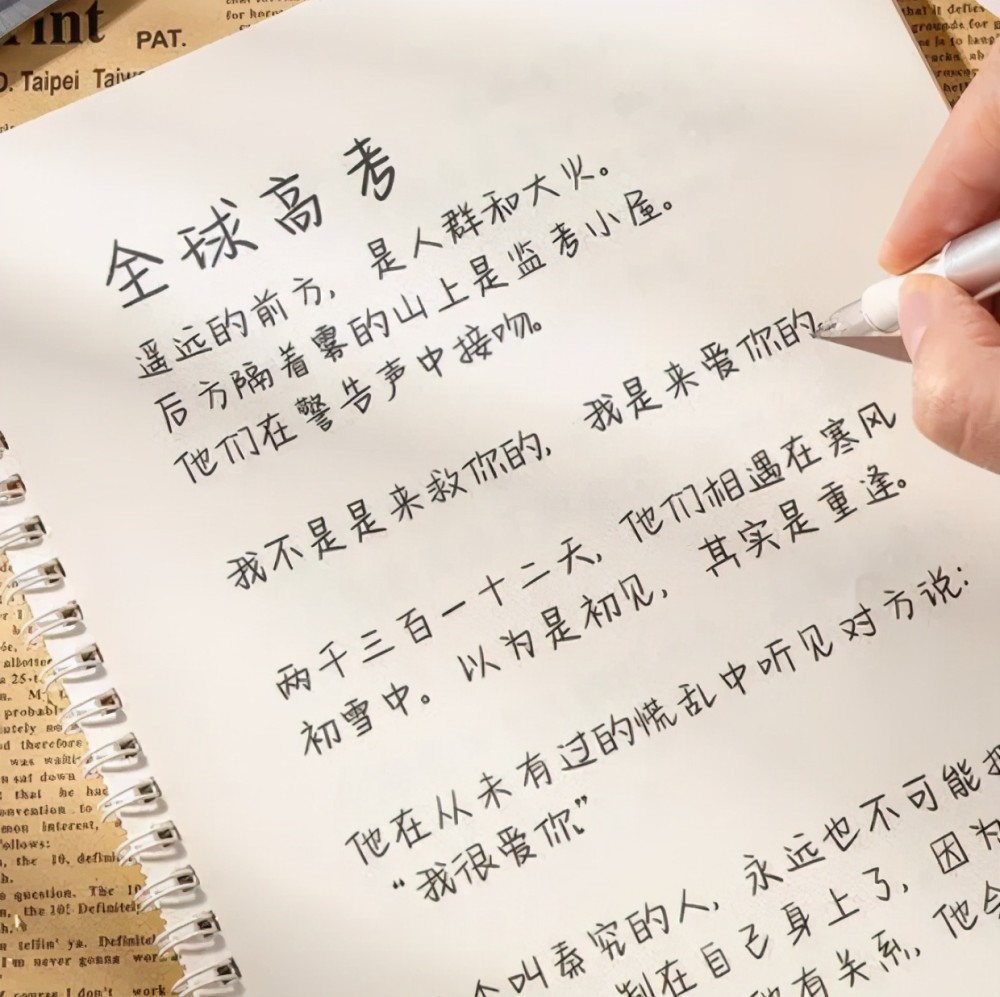 rint
PAT.
O. Taipei Taiw
全球高考
遥远的前方，是人群和大火。
后方隔着雾的山上是监考小屋。
他们在警告声中接吻。
我不是是来救你的，我是来爱你的
两千三百一十二天，他们相遇在寒风
初雪中。以为是初见，其实是重逢。
他在从未有过的慌乱中听见对方说：
“我很爱你”
个叫秦究的人，永远也不可能把
制在自己身上了，因为
有关系，他会
25-t
M.
probabl
therefore
was
sat down
that he had
convention to
interest,
follows:
the 10, defini
question. The 10
the 10! Definitel
tellin' ya. Definite
I'm never gonna wor
course I don't work